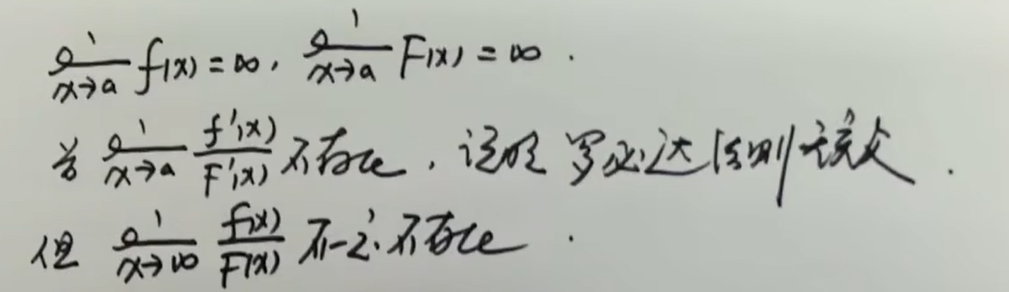 lim x→a f(x) = ∞, lim x→a F(x) = ∞.
若 lim x→a f'(x)/F'(x) 不存在, 说明 罗必达法则 .
但 lim x→∞ f(x)/F(x) 不一定不存在 .